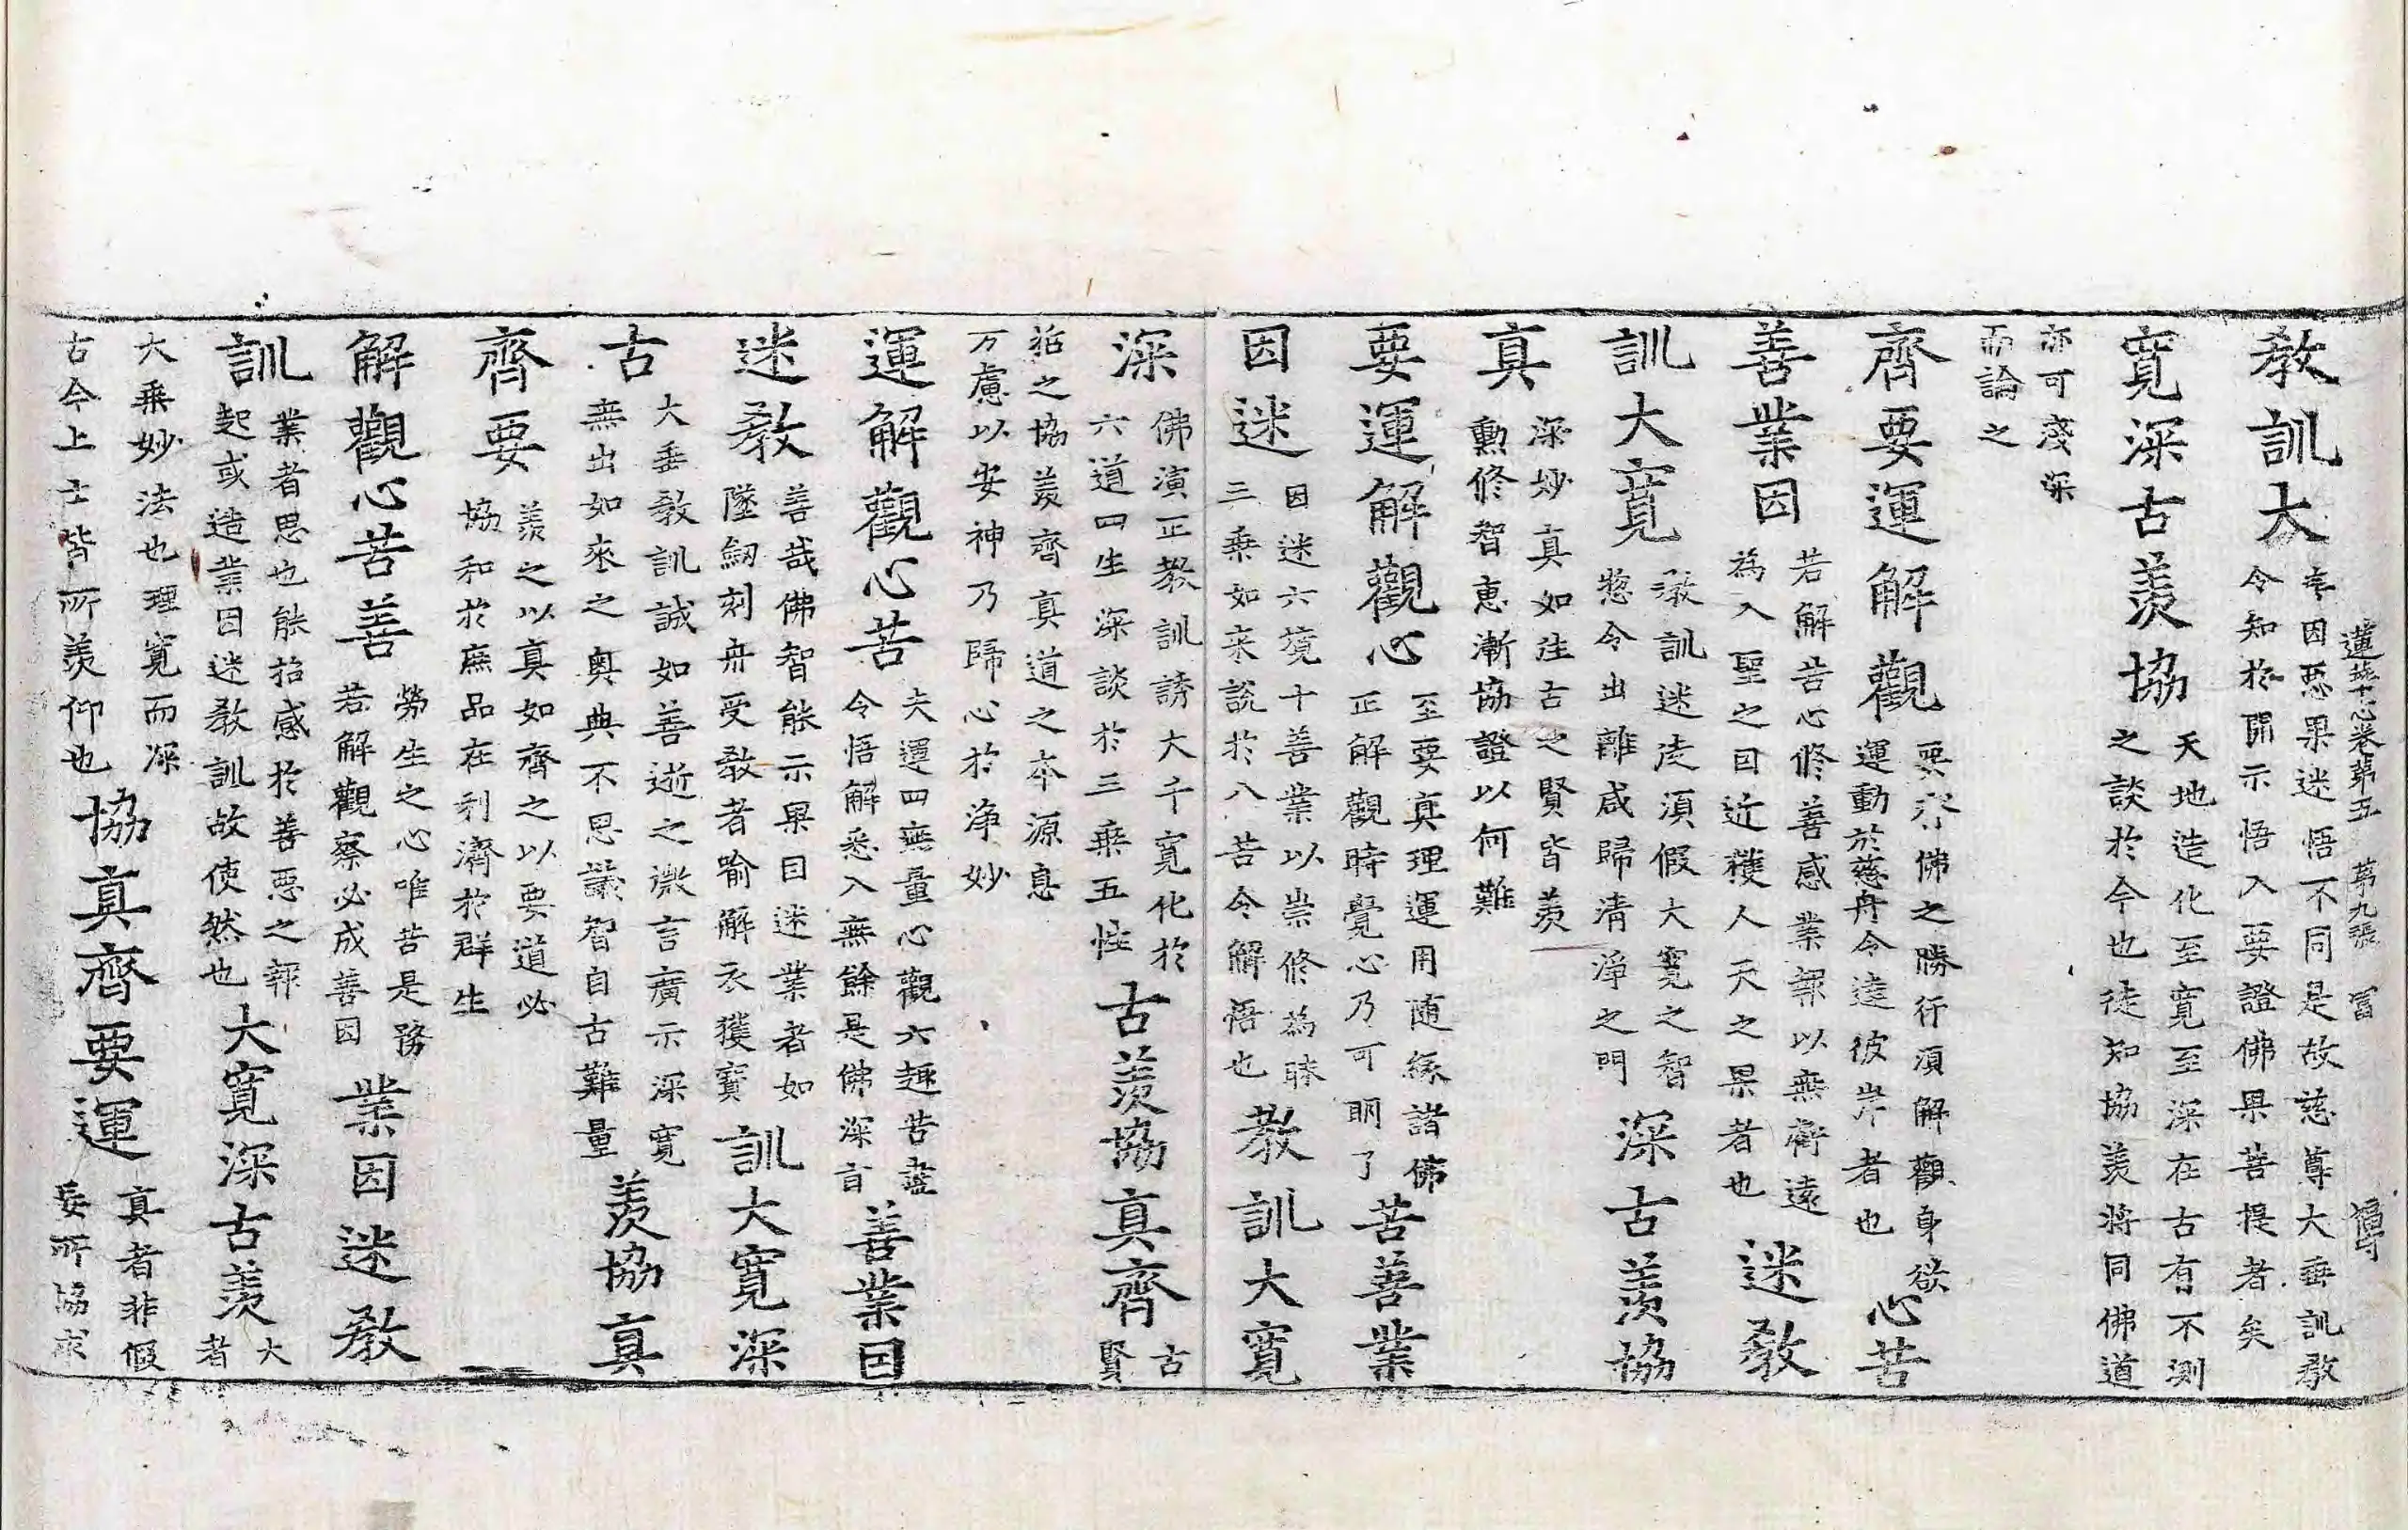 蓮華心卷第五 第九張 冨
教訓大 夫因惡果迷悟不同是故慈尊大垂訓教
令知於開示悟入要證佛果菩提者矣
寬深古羨協 天地造化至寬至深在古有不測
之談於今也徒知協羨將同佛道
亦可淺深
而論之
齊要運解觀 要齊佛之勝行須解觀身欲
運動於慈舟令達彼岸者也 心苦
善業因 若解苦心修善感業報以無齊遠
為入聖之因近穫人天之果者也 迷教
訓大寬 教訓迷途須假大寬之智
愍令出離咸歸清淨之門 深古羨協
真 深妙真如往古之賢皆羨
勳修智惠漸協證以何難
要運解觀心 至要真理運用随緣諸佛
正解觀時覺心乃可明了 苦善業
因迷 因迷六境十善業以崇修為昧
三乗如来說於八苦令解悟也 教訓大寬
深 佛演正教訓誘大千寬化於
六道四生深談於三乗五性 古羨協真齊 古
賢
括之協羨齊真道之本源息
万慮以安神乃歸心於淨妙
運解觀心苦 夫運四無量心觀六趣苦盡
令悟解悉入無餘是佛深言 善業因
迷教 善哉佛智能示果因迷業者如
墜劒刻舟受教者喻解衣獲寶 訓大寬深
古 大垂教訓誠如善逝之微言廣示深寬
無出如來之奥典不思議智自古難量 羨協真
齊要 羨之以真如齊之以要道必
協和於庶品在利濟於群生
解觀心苦善 勞生之心唯苦是務
若解觀察必成善因 業因迷教
訓 業者思也能招感於善惡之報
起或造業因迷教訓故使然也 大寬深古羨 大
者
大乗妙法也理寬而深
古今上士皆所羨仰也 協真齊要運 真者非假
妄所協求